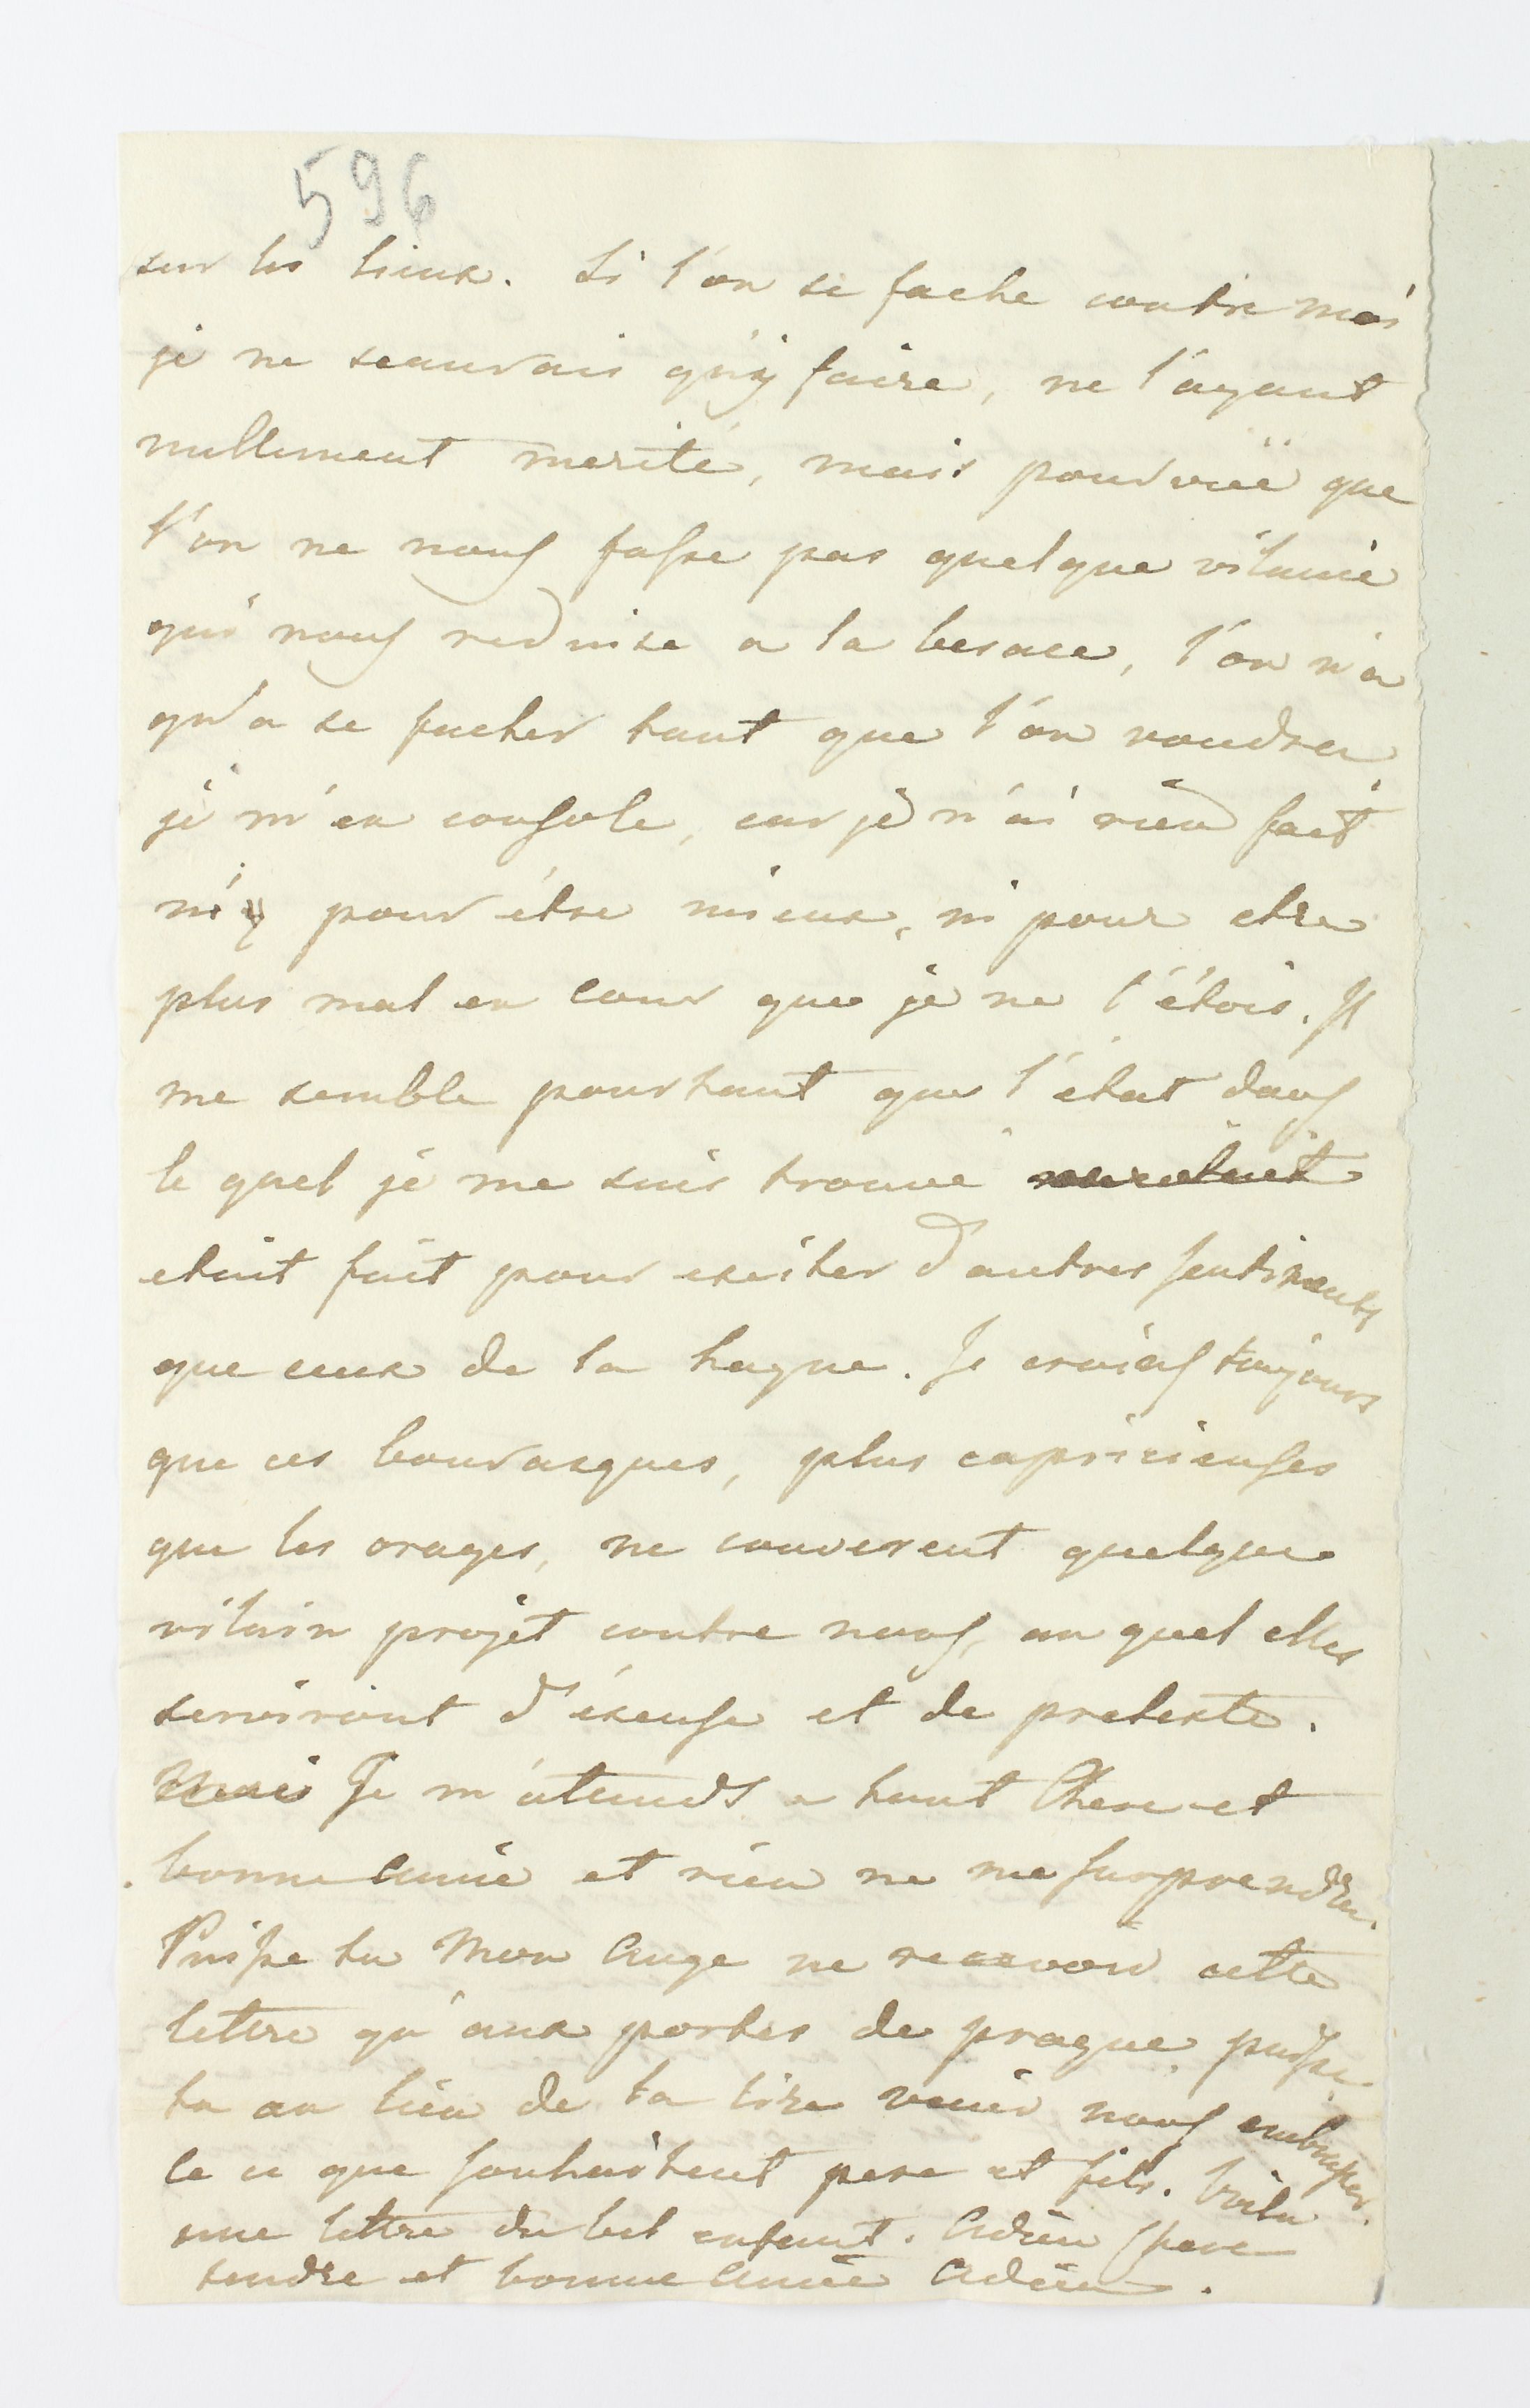 596
sur les lieux. Si l'on se fache contre moi
je ne scaurais qu'y faire, ne l'ayant
nullement merité, mais pourvüe que
l'on ne nous fasse pas quelque vilainie
qui nous reduise a la besace, l'on n'a
qu'a se facher tant que l'on voudra
je m'en console, car je n'ai rien fait
ni pour étre mieux, ni pour etre
plus mal en cour que je ne l'étois. Il
me semble pourtant que l'état dans
le quel je me suis trouvé
etoit fait pour exciter d'autres sentiments
que ceux de la hayne. Je crains toujours
que ces bourasques, plus capricieuses
que les orages, ne couvérent quelque
vilain projet contre nous, au quel elles
serviront d'éxcuse et de pretexte.
Mais Je m'atends a tout Chere et
bonne Amie et rien ne me surprendra.
Puisse tu Mon Ange ne recevoir cette
lettre qu'aux portes de prague, puisse
tu au lieu de la lire venir nous embrasser.
ce ce que souhaitent pere et fils. Voila
une lettre du bel enfant. Adieu Chere
tendre et bonne Amie Adieu.